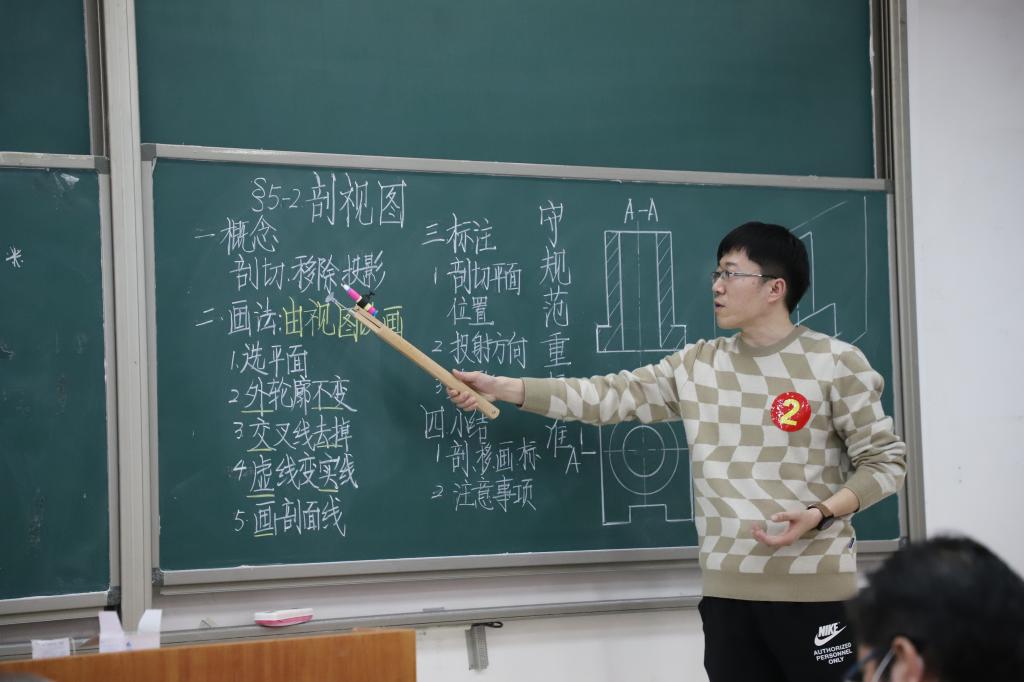 §5-2 剖视图
一 概念
剖切.移除.投影
二. 画法:由视图 画
1.选平面
2 外轮廓不变
3 交叉线去掉
4 虚线变实线
5.画剖面线
三 标注
1 剖切平面
位置
2 投射方向
3
四.小结
1 剖.移画标
2 注意事项
守规范重 准
A-A
A
2
NIKE
AUTHORIZED
PERSONNEL
ONLY